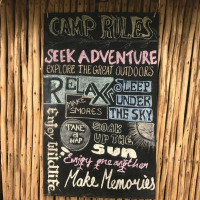 CAMP RULES
SEEK ADVENTURE
EXPLORE THE GREAT OUTDOORS
RELAX
SLEEP
UNDER
THE SKY
MAKE
SMORES
TAKE
A
NAP
SOAK
UP THE
SUN
Enjoy Wildlife
Enjoy one another
Make Memories